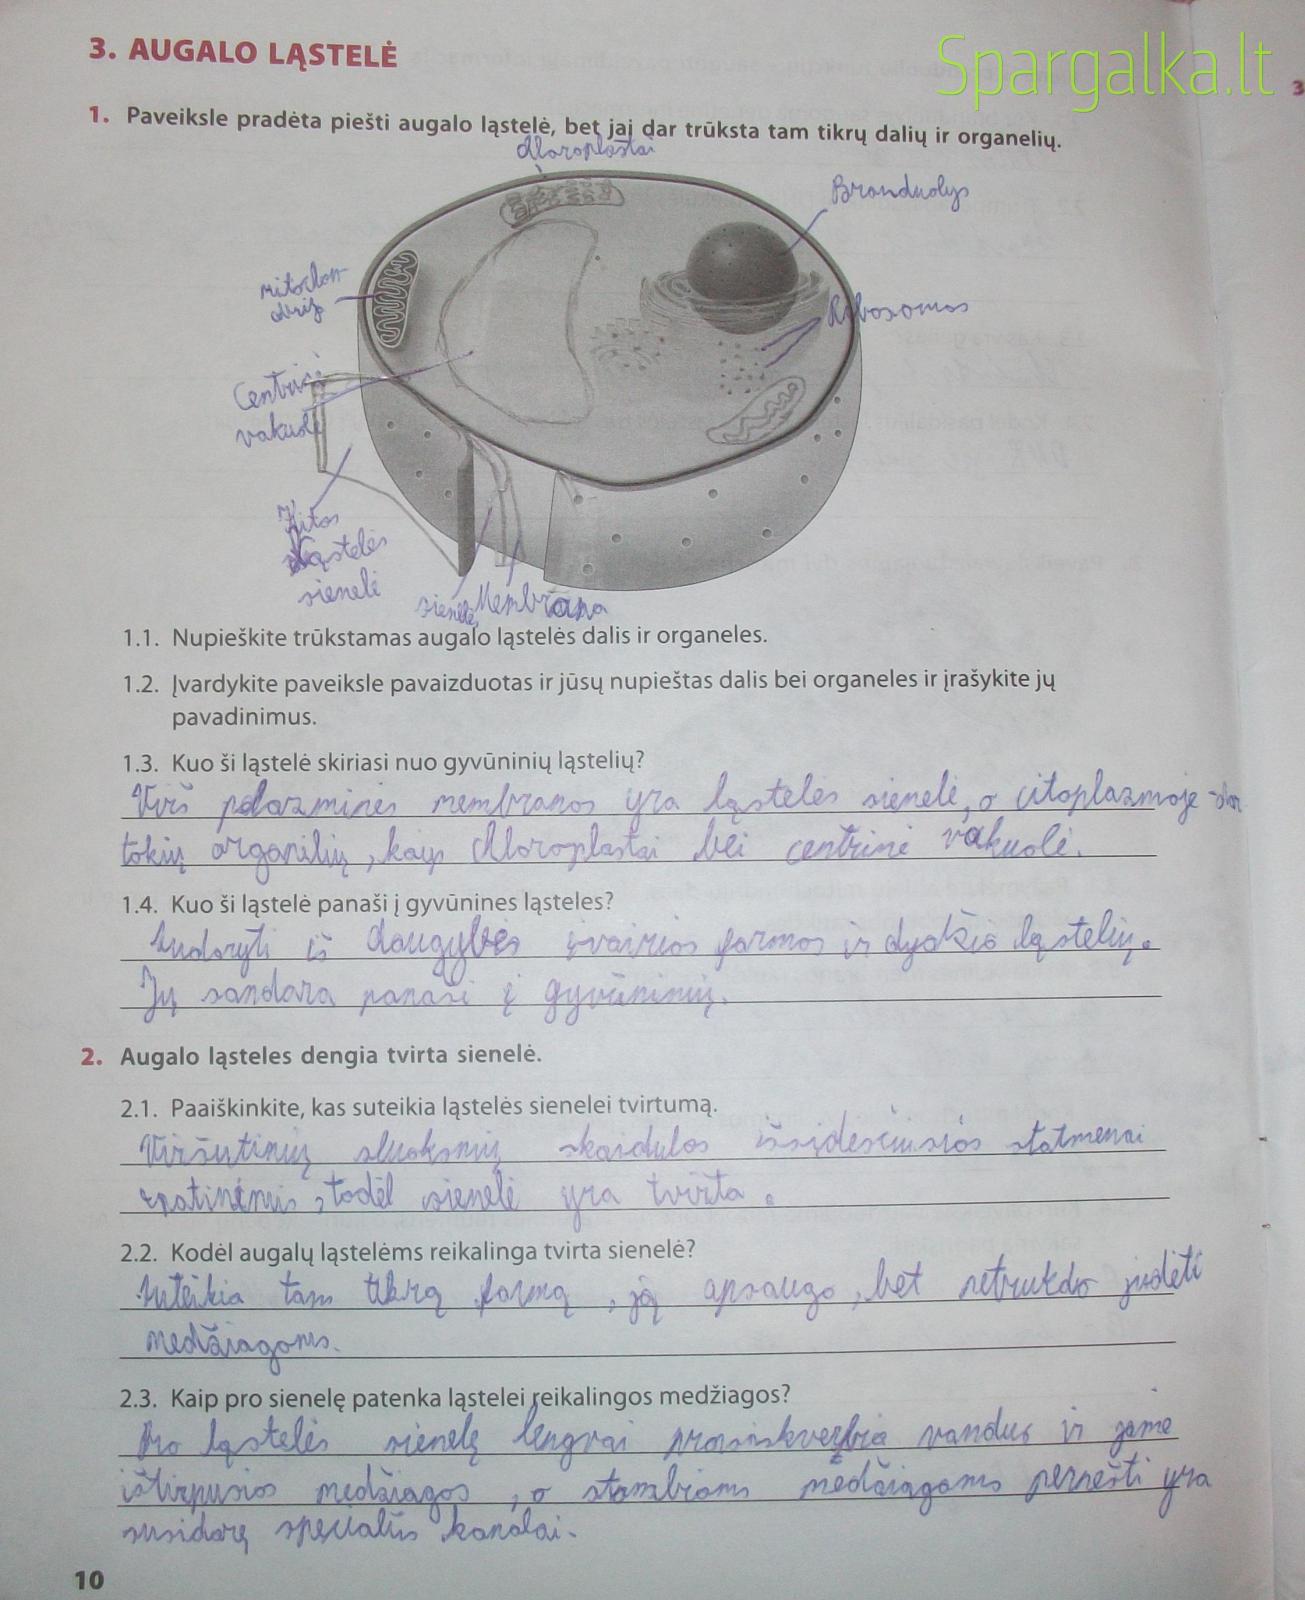 3. AUGALO LĄSTELĖ
Spargalka.lt
3
1. Paveiksle pradėta piešti augalo ląstelė, bet jai dar trūksta tam tikrų dalių ir organelių.
chloroplastai
Branduolys
mitochon-
drija
Ribosomos
Centrinė
vakuolė
Kitos
ląstelės
sienelė
sienelė
Membrana
1.1. Nupieškite trūkstamas augalo ląstelės dalis ir organeles.
1.2. Įvardykite paveiksle pavaizduotas ir jūsų nupieštas dalis bei organeles ir įrašykite jų
pavadinimus.
1.3. Kuo ši ląstelė skiriasi nuo gyvūninių ląstelių?
Virš plazminės membranos yra ląstelės sienelė, o citoplazmoje dar
tokių organilių, kaip chloroplastai bei centrinė vakuolė.
1.4. Kuo ši ląstelė panaši į gyvūnines ląsteles?
Sudaryti iš daugybės įvairios formos ir dydžio ląstelių.
Jų sandara panaši į gyvūninių.
2. Augalo ląsteles dengia tvirta sienelė.
2.1. Paaiškinkite, kas suteikia ląstelės sienelei tvirtumą.
Viršutinių sluoksnių skaidulos išsidėsčiusios statmenai
apatinėms, todėl sienelė yra tvirta.
2.2. Kodėl augalų ląstelėms reikalinga tvirta sienelė?
Suteikia tam tikrą formą, ją apsaugo, bet netrukdo judėti
medžiagoms.
2.3. Kaip pro sienelę patenka ląstelei reikalingos medžiagos?
Pro ląstelės sienelę lengvai prasiskverbia vanduo ir jame
ištirpusios medžiagos, o stambioms medžiagoms pernešti yra
susidarę specialūs kanalai.
10